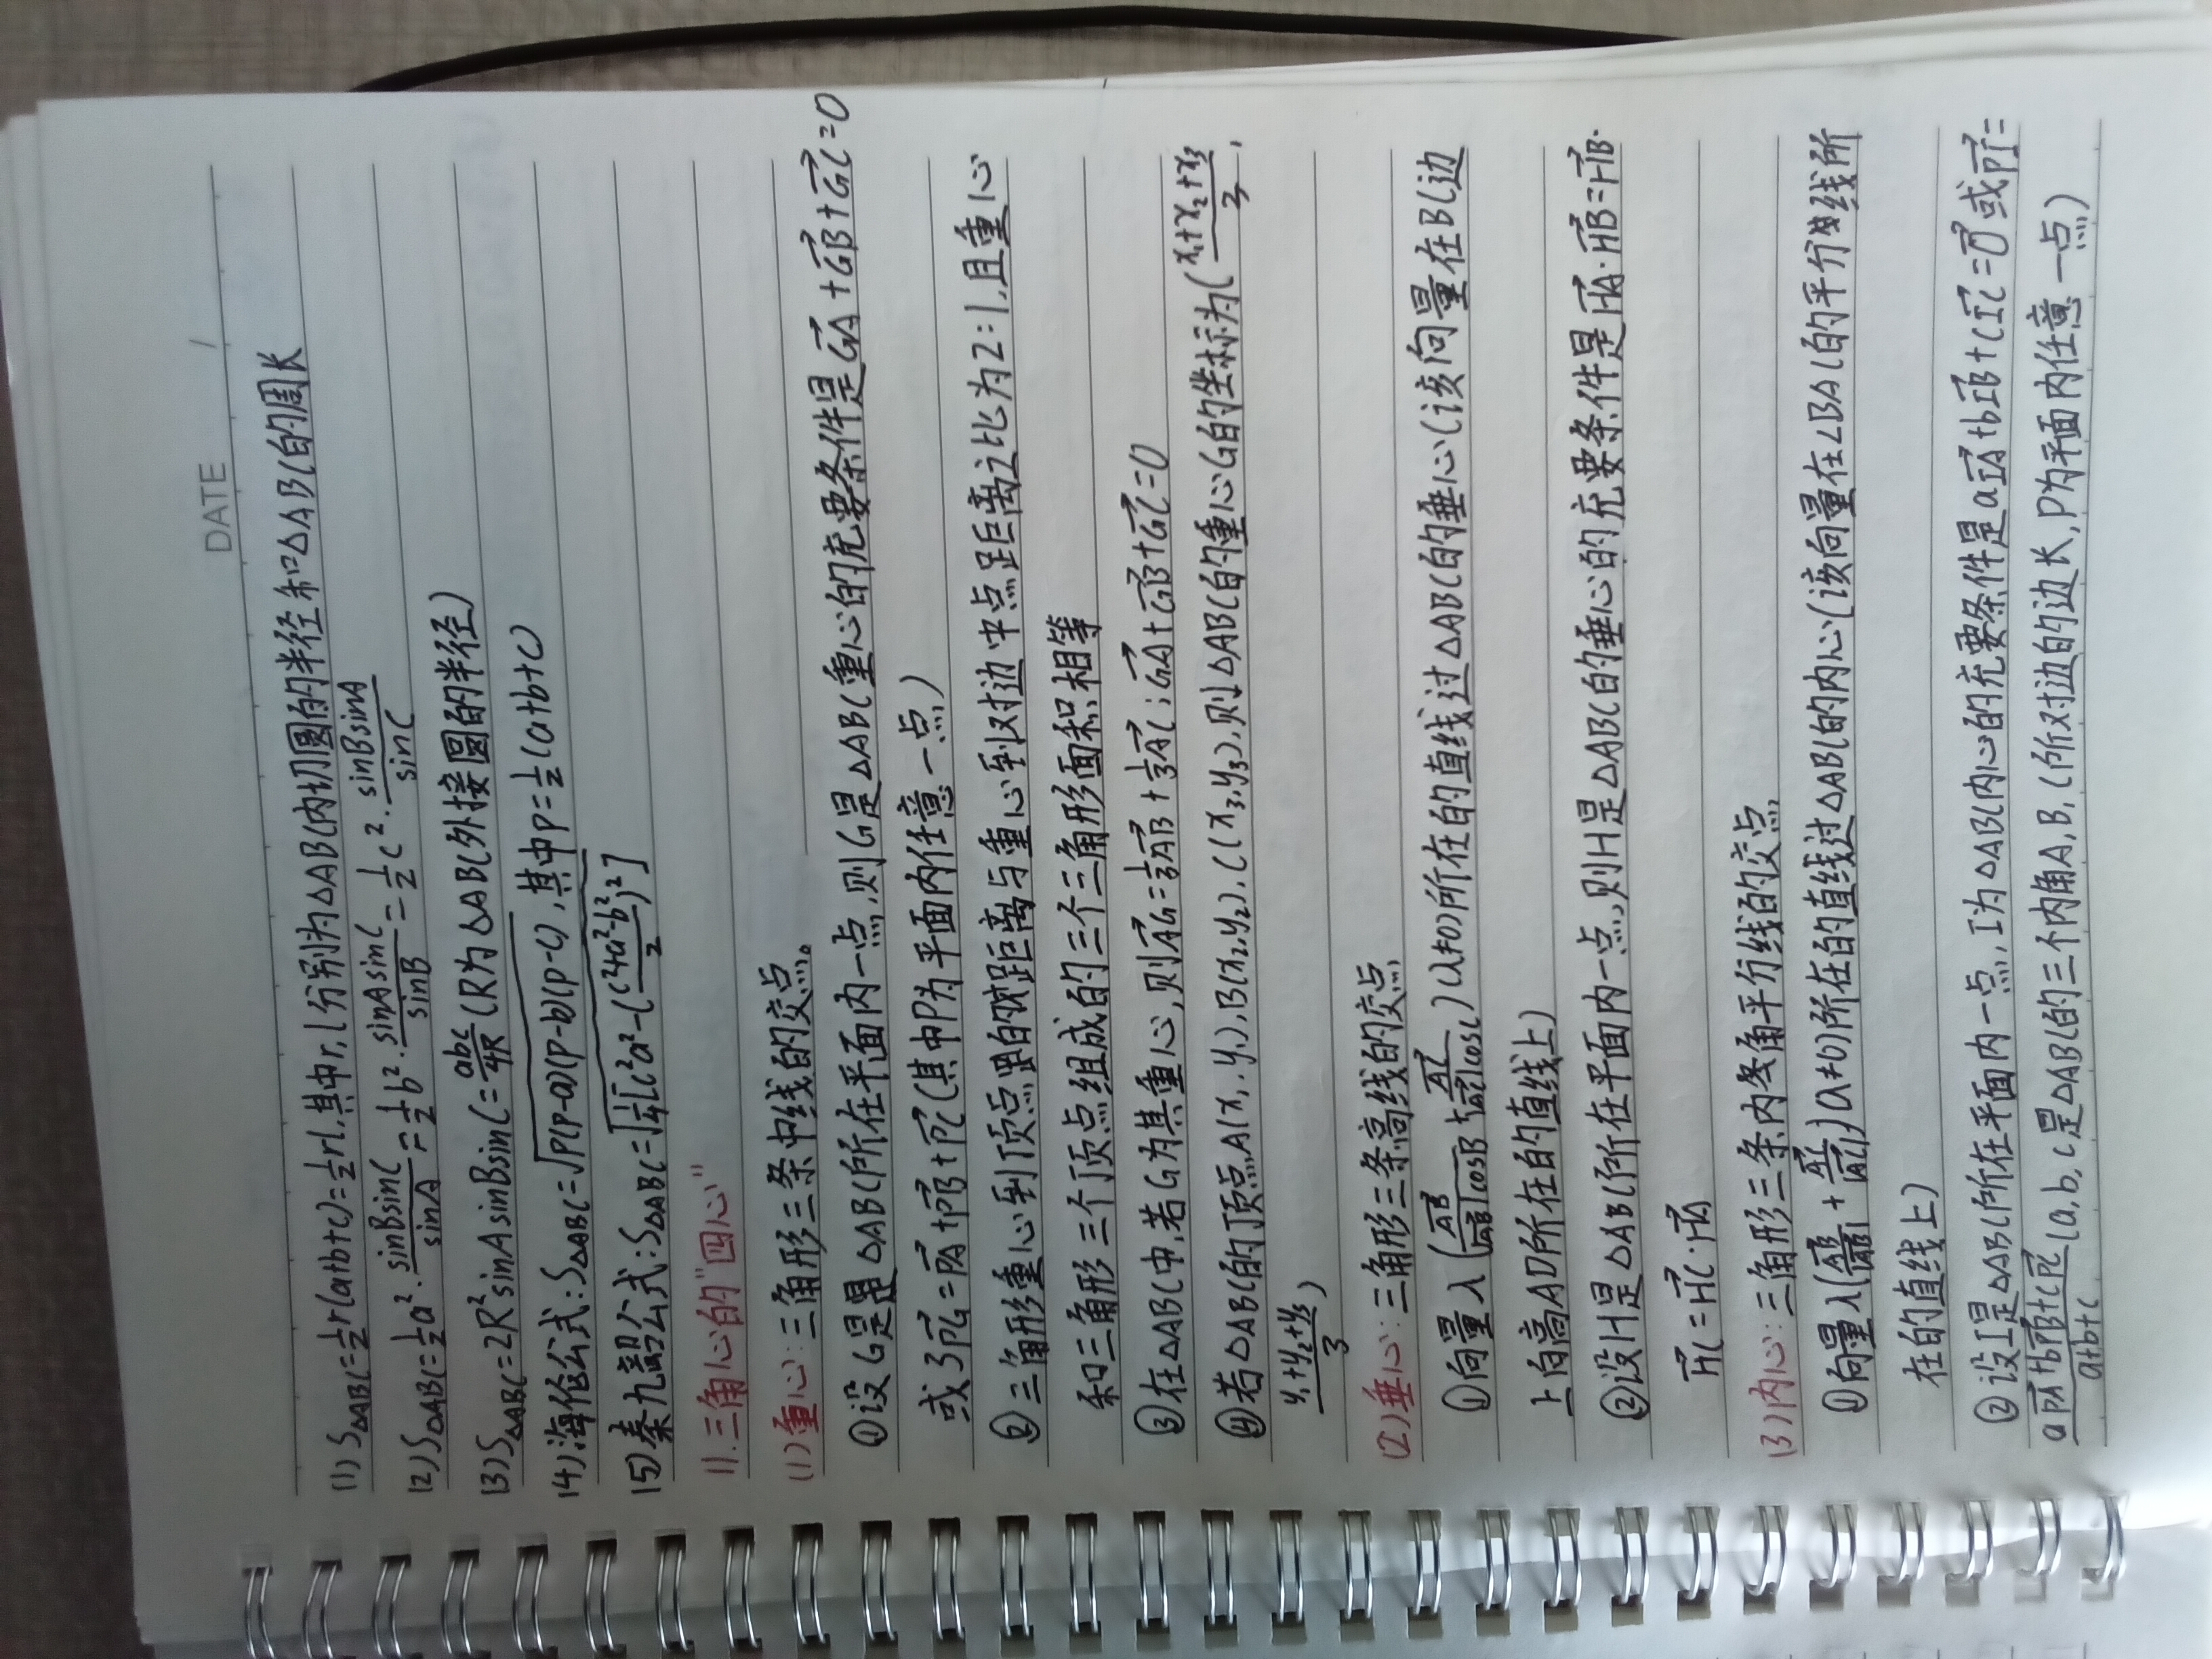 DATE /
(1) S△ABC=½r(a+b+c)=½rl,其中r,l分别为△ABC内切圆的半径和△ABC的周长
(2) S△ABC=½a²·sinBsinC/sinA=½b²·sinAsinC/sinB=½c²·sinBsinA/sinC
(3) S△ABC=2R²sinAsinBsinC=abc/4R(R为△ABC外接圆的半径)
(4)海伦公式:S△ABC=√p(p-a)(p-b)(p-c),其中p=½(a+b+c)
(5)秦九韶公式:S△ABC=√¼[c²a²-(c²+a²-b²/2)²]
11.三角心的"四心"
(1)重心:三角形三条中线的交点。
①设G是△ABC所在平面内一点,则G是△ABC重心的充要条件是GA⃗+GB⃗+GC⃗=0
或3PG⃗=PA⃗+PB⃗+PC⃗(其中P为平面内任意一点)
②三角形重心到顶点的距离与重心到对边中点距离之比为2:1,且重心
和三角形三个顶点组成的三个三角形面积相等
③在△ABC中,若G为其重心,则AG⃗=⅓AB⃗+⅓AC⃗;GA⃗+GB⃗+GC⃗=0
④若△ABC的顶点A(x₁,y₁),B(x₂,y₂),C(x₃,y₃),则△ABC的重心G的坐标为(x₁+x₂+x₃/3,
y₁+y₂+y₃/3)
(2)垂心:三角形三条高线的交点
①向量λ(AB⃗/|AB⃗|cosB+AC⃗/|AC⃗|cosC)(λ≠0)所在的直线过△ABC的垂心(该向量在BC边
上的高AD所在的直线上)
②设H是△ABC所在平面内一点,则H是△ABC的垂心的充要条件是HA⃗·HB⃗=HB⃗·
HC⃗=HC⃗·HA⃗
(3)内心:三角形三条内角平分线的交点
①向量λ(AB⃗/|AB⃗|+AC⃗/|AC⃗|)(λ≠0)所在的直线过△ABC的内心(该向量在∠BAC的平分线所
在的直线上)
②设I是△ABC所在平面内一点,I为△ABC内心的充要条件是aIA⃗+bIB⃗+cIC⃗=0⃗或PI⃗=
aPA⃗+bPB⃗+cPC⃗/a+b+c(a,b,c是△ABC的三个内角A,B,C所对边的边长,P为平面内任意一点)